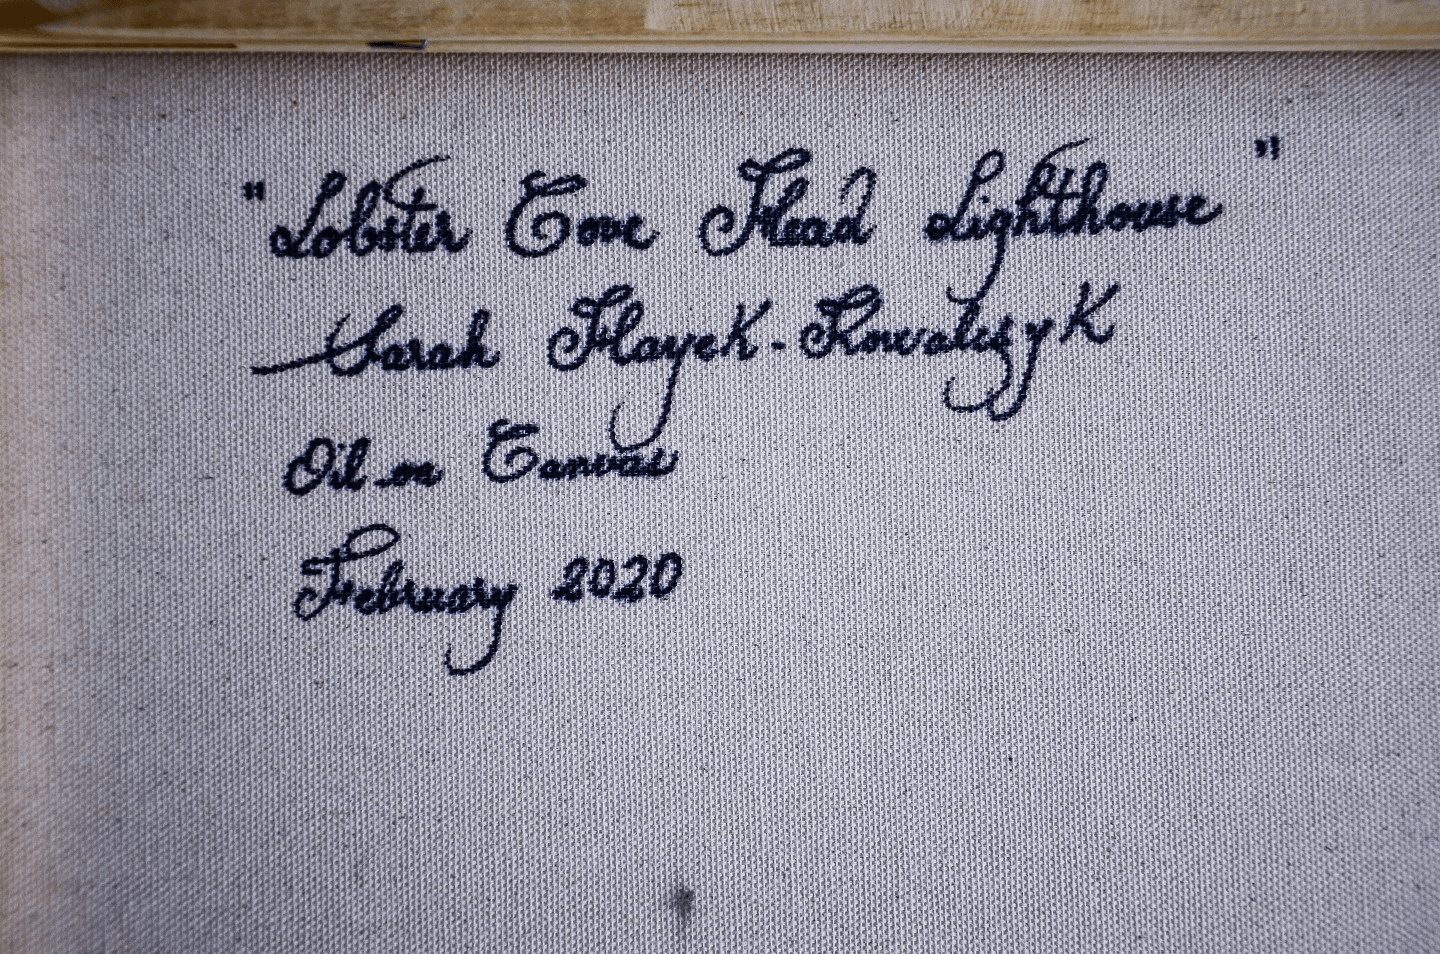 "Lobster Cove Head Lighthouse"
Sarah Hayek-Kowalczyk
Oil on Canvas
February 2020